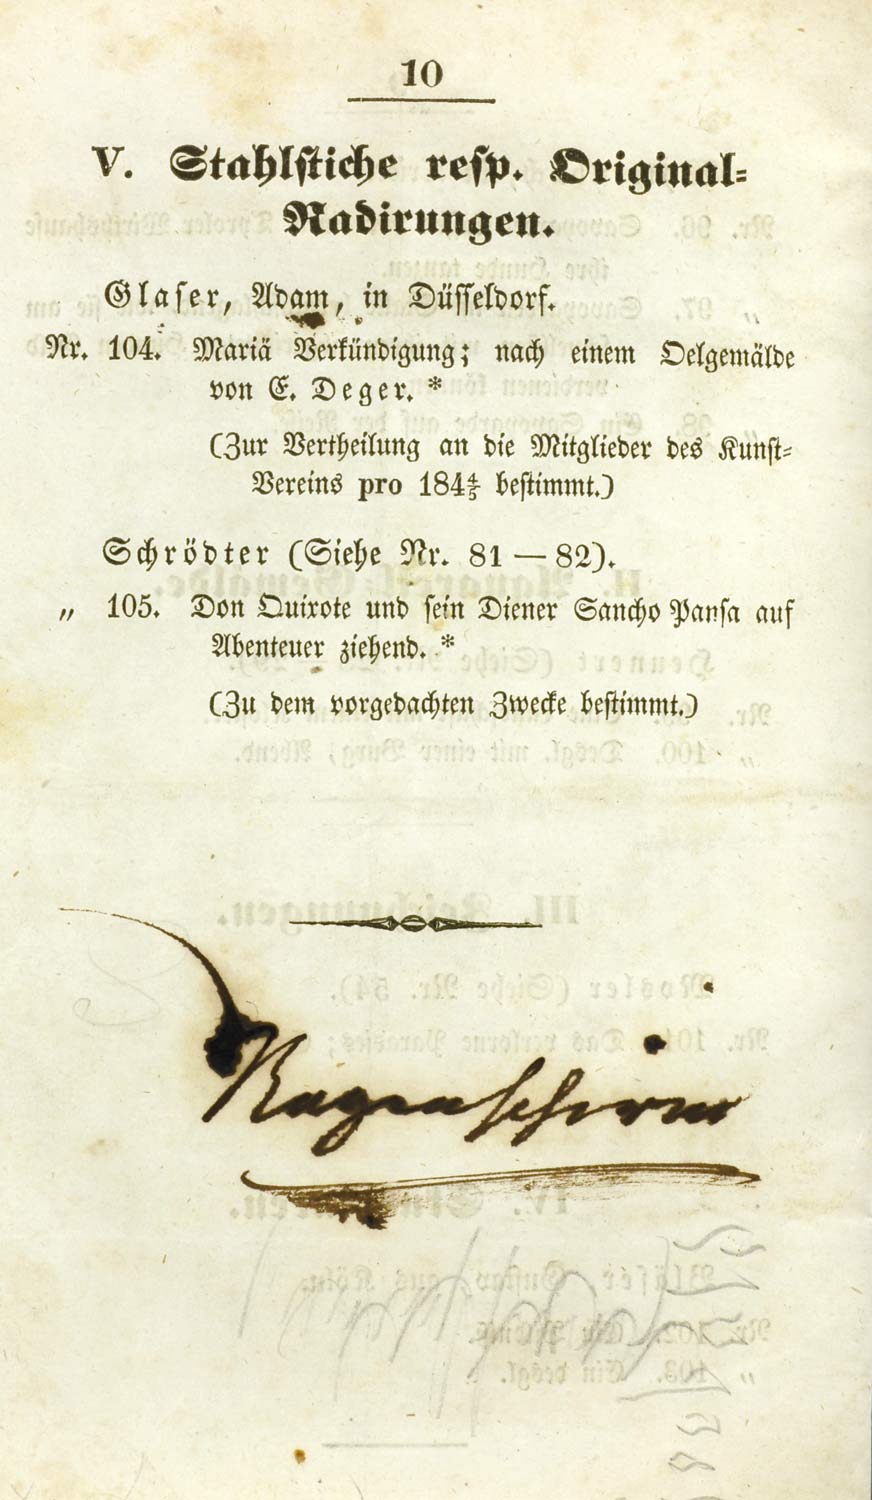 10
V. Stahlstiche resp. Original-
Radirungen.
Glaser, Adam, in Düsseldorf.
Nr. 104. Mariä Verkündigung; nach einem Oelgemälde
von E. Deger. *
(Zur Vertheilung an die Mitglieder des Kunst-
Vereins pro 184⅘ bestimmt.)
Schrödter (Siehe Nr. 81 — 82).
„ 105. Don Quixote und sein Diener Sancho Pansa auf
Abenteuer ziehend. *
(Zu dem vorgedachten Zwecke bestimmt.)
Regenschirm